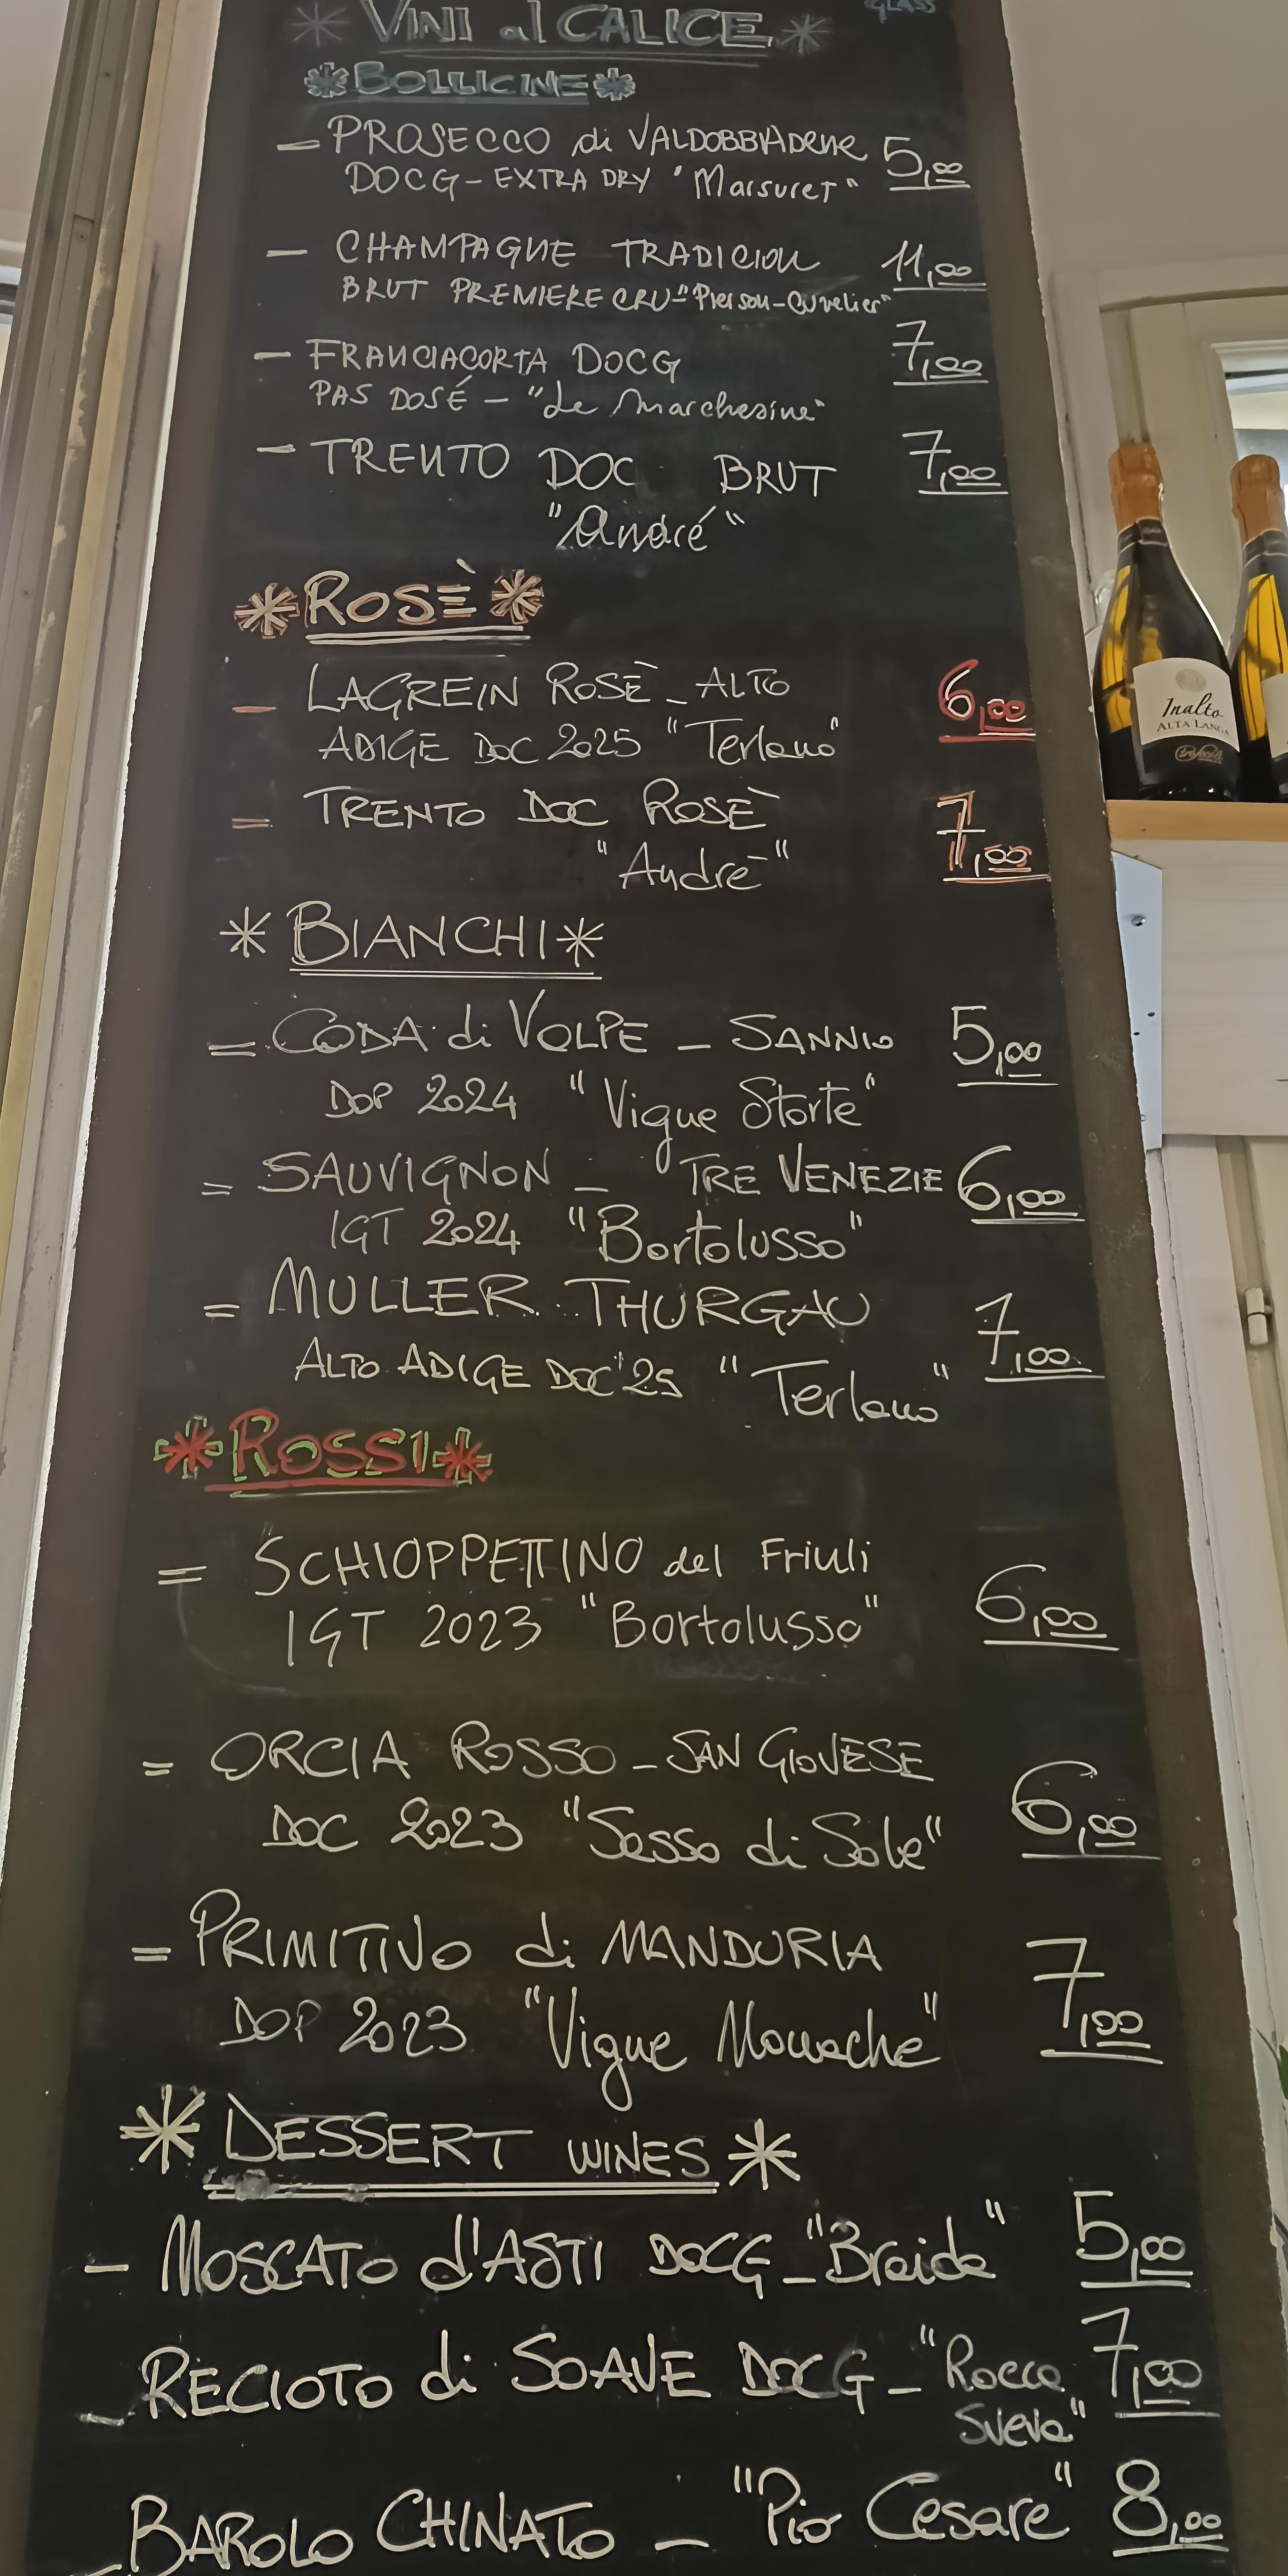 GLASS
* VINI al CALICE *
* BOLLICINE *
- PROSECCO di VALDOBBIADENE 5,00
DOCG - EXTRA DRY "Marsuret"
- CHAMPAGNE TRADICION 11,00
BRUT PREMIERE CRU - "Pierson-Cuvelier"
- FRANCIACORTA DOCG 7,00
PAS DOSÉ - "Le Marchesine"
- TRENTO DOC BRUT 7,00
"André"
* ROSÈ *
- LAGREIN ROSÈ - ALTO 6,00
ADIGE DOC 2025 "Terlano"
= TRENTO DOC ROSÈ 7,00
"André"
* BIANCHI *
= CODA di VOLPE - SANNIO 5,00
DOP 2024 "Vigne Storte"
= SAUVIGNON - TRE VENEZIE 6,00
IGT 2024 "Bortolusso"
= MULLER THURGAU 7,00
ALTO ADIGE DOC '25 "Terlano"
* ROSSI *
= SCHIOPPETTINO del Friuli 6,00
IGT 2023 "Bortolusso"
= ORCIA ROSSO - SAN GIOVESE 6,00
DOC 2023 "Sasso di Sole"
= PRIMITIVO di MANDURIA 7,00
DOP 2023 "Vigne Monache"
* DESSERT WINES *
- MOSCATO d'ASTI DOCG - "Braida" 5,00
- RECIOTO di SOAVE DOCG - "Rocca 7,00
Sveva"
- BAROLO CHINATO - "Pio Cesare" 8,00
Inalto
ALTA LANGA